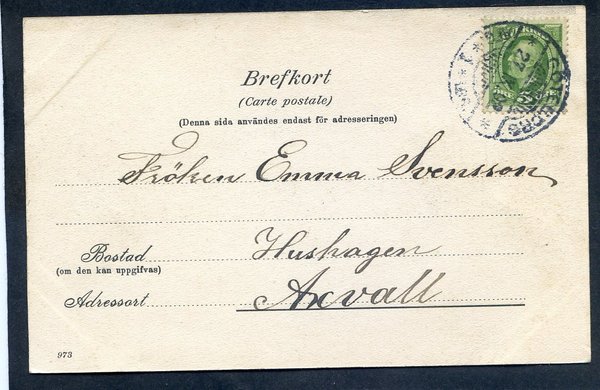 Brefkort
(Carte postale)
(Denna sida användes endast för adresseringen)
Fröken Emma Svensson
Bostad
(om den kan uppgifvas)
Hushagen
Adressort
Axvall
973
GÖTEBORG
27